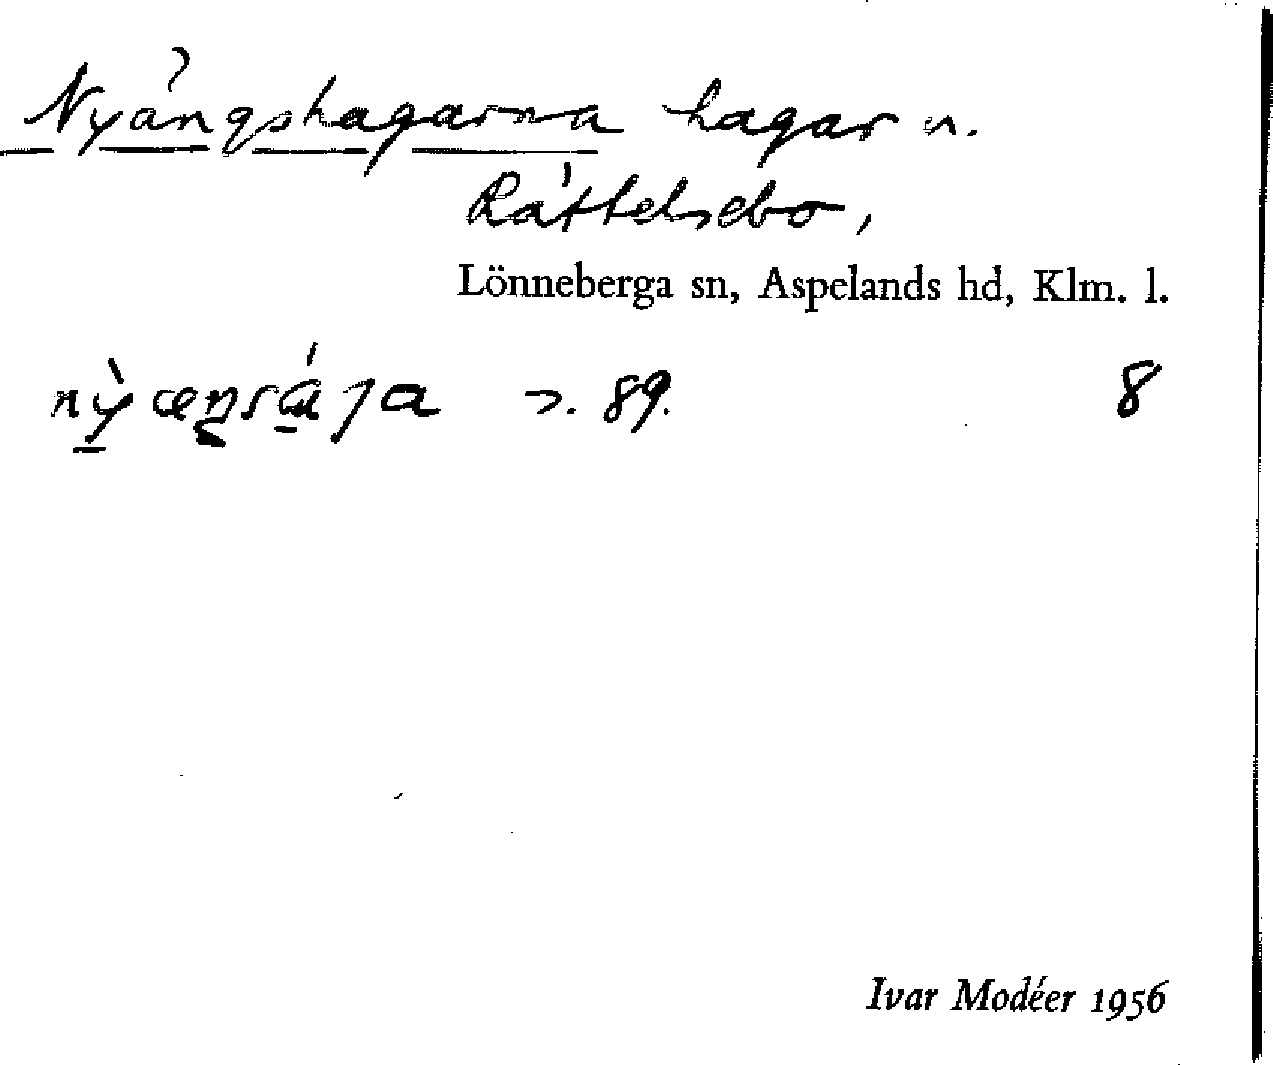 Nyängshagarna hagar u.
Rättelsebo,
Lönneberga sn, Aspelands hd, Klm. l.
89. 8
Ivar Modéer 1956